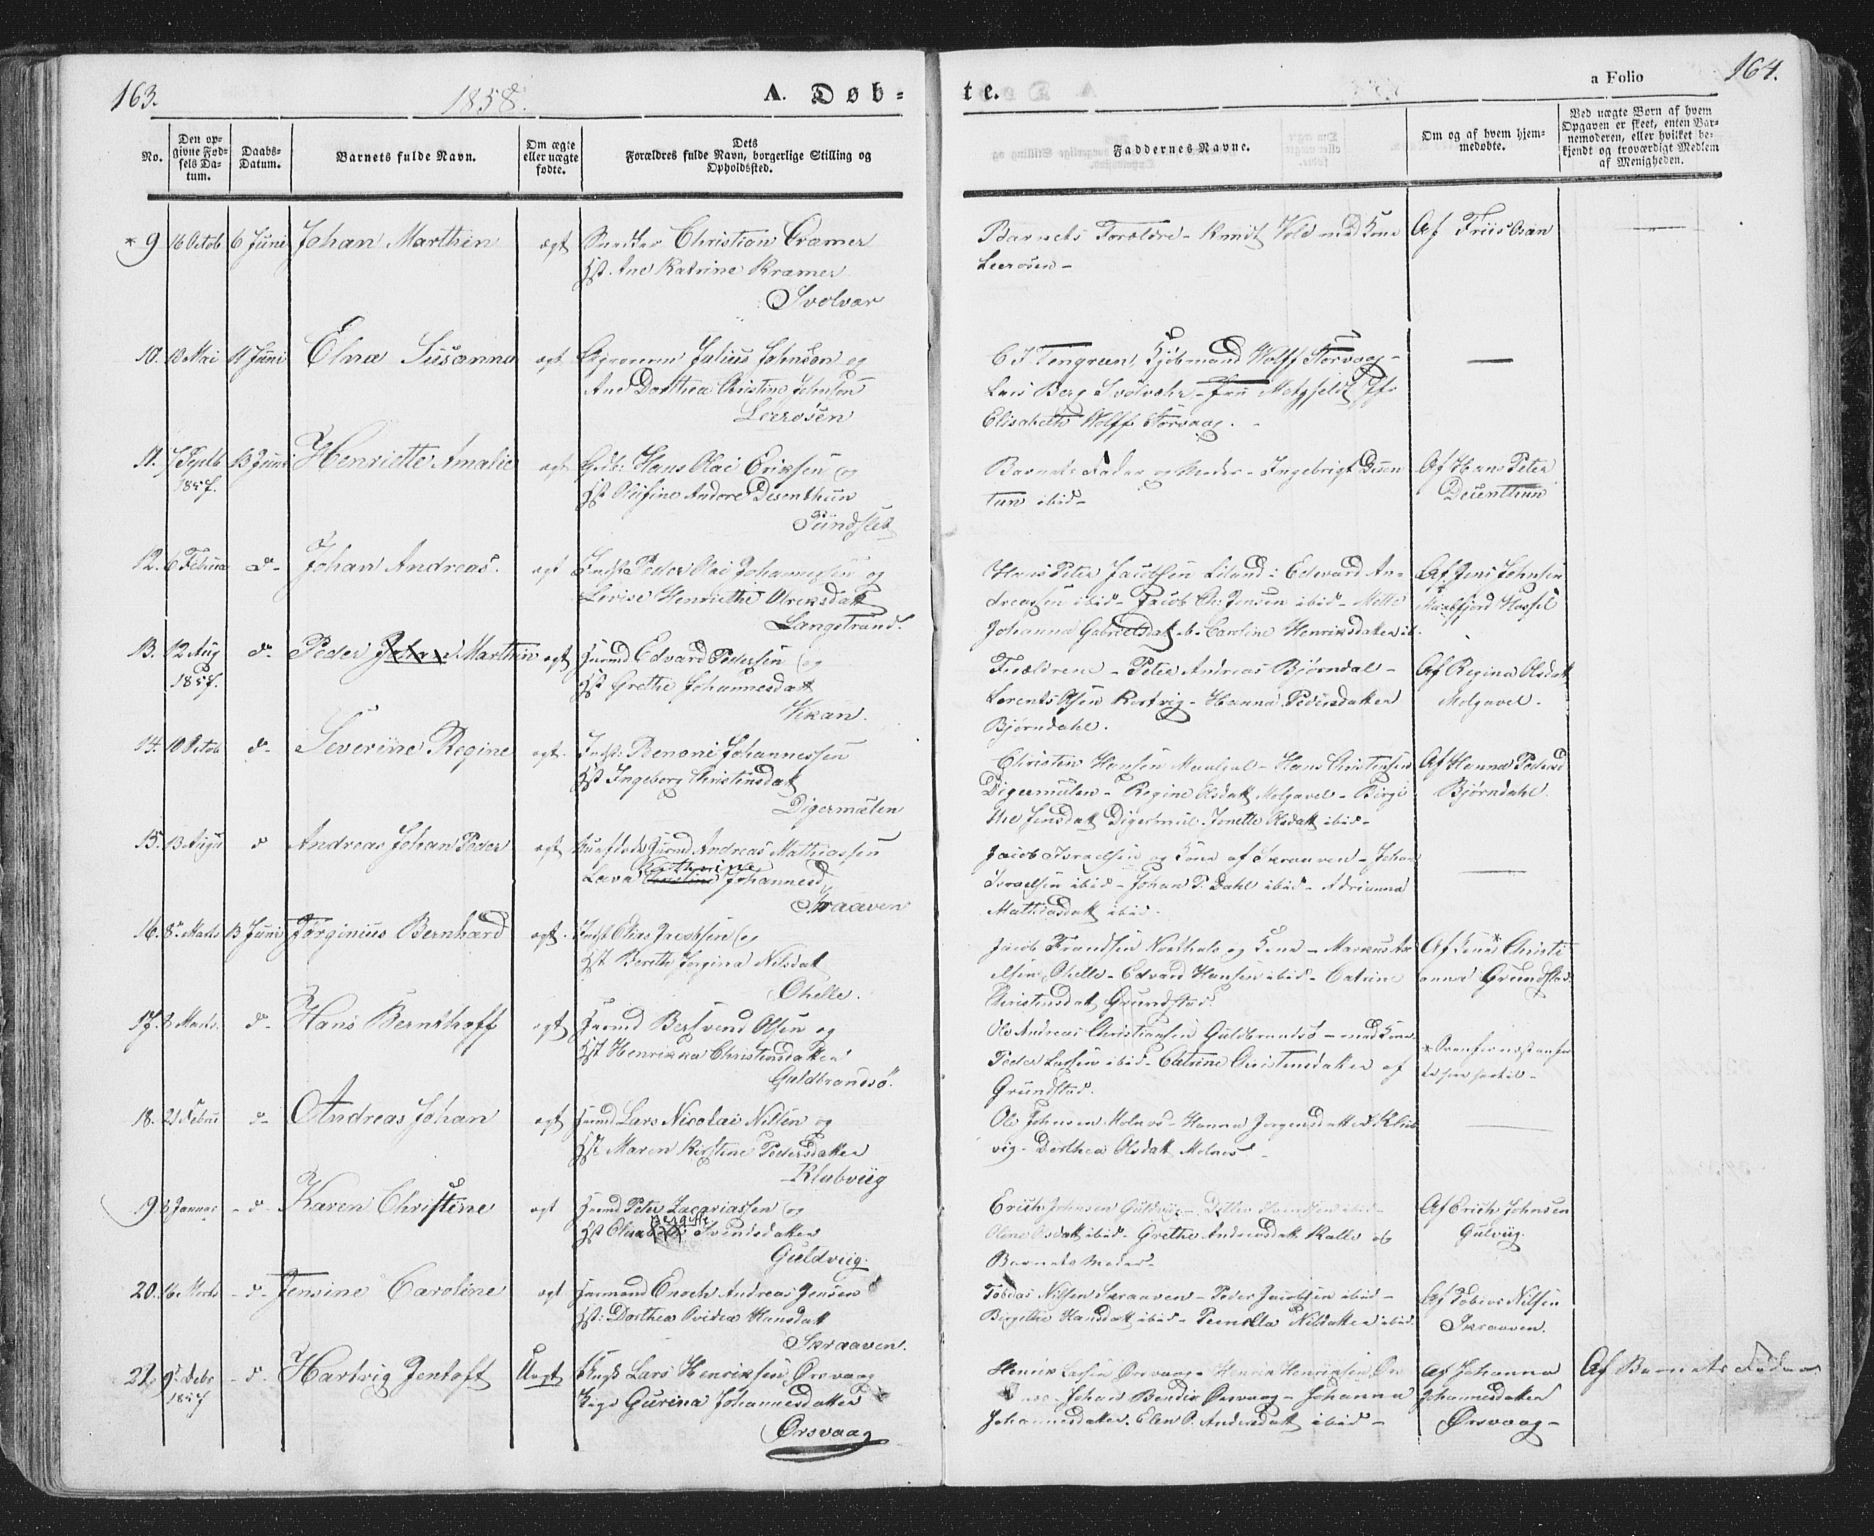 163.
1858.
A. Døb-
te.
a Folio
164.
No.
Den op-
givne Fød-
sels Da-
tum.
Daabs-
Datum.
Barnets fulde Navn.
Om ægte
eller uægte
fødte.
Dets
Forældres fulde Navn, borgerlige Stilling og
Opholdssted.
Faddernes Navne.
Om og af hvem hjem-
medøbte.
Ved uægte Børn af hvem
Opgaven er skeet, enten Bar-
nemoderen, eller hvilket be-
kjendt og troværdigt Medlem
af Menigheden.
* 9 16 Octob 6 Juni Johan Marthin ægt Christian Cramer
Hst. Ane Katrine Kramer
Svolvær
Barnets Forældre - Knut Vold med Kone
Leerosen -
Af Friis Aan
10. 10 Mai 11 Juni Elna Susanna ægt Julius Johnson og
Ane Dorthea Christine Johnson
Leerosen
C. J. Tengreen, Kjøbmand Wolff Storvaag -
Lars Berg Svolvær - Metzfeldt
Elisabeth Wolff Storvaag.
11. 7 Septb 13 Juni Henriette Amalie ægt Hans Olai Eriksen og
1857.
Hst Olufine Andore Desenthun
Sundslet
Barnets Fader og Moder - Ingebrigt Desen
tun ibid -
Af Hans Peter
Desenthun
12. 6 Februa d - Johan Andreas. ægt Indst Peder Olai Johannessen og
Lovise Henriethe Olreksdatt
Langstrand.
Hans Peter Jacobsen Liland: Edevard An-
dreassen ibid - Jacob Chr. Jensen ibid - Mette
Johanna Gabrielsdat ib - Caroline Henriksdatter ib.
Af Jens Johnsen
Hassel
13. 12 Aug d - Peder Johan Marthin ægt Huusmd Edvard Pedersen og
1857.
Hst Grethe Johannesdat
Vikan.
Forældrene - Peter Andreas Bjørndal -
Lorents Olsen Rostvig - Hanna Pedersdatter
Bjørndahl.
Af Regina Olsdatt
Molgavel.
14. 10 Octob d - Severine Regine ægt. Indst: Benoni Johannessen
Hst Ingeborg Christensdat
Digermulen
Christen Hansen - Hans Christensen
Digermulen - Regine Olsdatt Molgavel - Birgi
the Jensdat Digermul - Jonette Olsdatt ibid -
Af Hanna Pedersd
Bjørndahl.
15. 13 Augu d Andreas Johan Peder ægt Huusmd Andreas Mathiassen
Catharine
Lava Christine Johannesd.
Skraaven
Jacob Israelsen og Kone af Skraaven - Johan
Israelsen ibid - Johan P. Dahl ibid - Adrianna
Mathiasdatt ibid.
16. 8 Marts 13 Juni Jørginius Bernhard ægt. Indst Elias Jacobsen og
Hst Berethe Jorgina Nilsdat
Ohelle.
Jacob Frandsen og Kone - Markus Ax
elsen Ohelle - Edvard Hansen ibid - Catrine
Christensdat Grundstad.
Af Kone * Christi
anna Grundstad
17. 8 Marts. d - Hans Bernthoff ægt Huusmd Bersvend Olsen og
Hst Henrikka Christensdatter
Guldbrandsø.
Ole Andreas Christiansen Guldbrandsø - med Kone
Peder Larsen ibid - Catrine Christensdatter af
Grundstad.
18. 21 Febru d - Andreas Johan ægt Huusmd Lars Nicolai Nilsen og
Hst Maren Kirstine Pedersdatter
Klubviig
Ole Johnsen Molnes - Hanna Jorgensdatter Klub
vig - Dorthea Olsdatt Molnes -
9 8 Januar - d - Karen Christine ægt Huusmd Peter Zacariassen og
Hst Svendsdatter
Guldviig.
Erich Johnsen Guldviig -
Oline Olsdatt ibid - Grethe Andreasdatt Kalle og
Barnets Moder -
Af Erich Johnsen
Gulviig.
20. 16 Marts - d - Jensine Caroline ægt Huusmand Enoch Andreas Jensen
Hst: Dorthea Ovidia Hansdatt
Skraaven.
Tobias Nilsen Skraaven - Peder Jacobsen ibid -
Birgithe Hansdatt ibid - Pernilla Nilsdatter ibid.
Af Tobias Nilsen
Skraaven.
21. 9 Debr - d - Hartvig Jentoft Uægt Ungk Lars Henriksen, Ørsvaag
1857
Pige Gurina Johannesdatter
Ørsvaag
Henrik Larsen Ørsvaag - Henrik Henriksen
Johan Bendix Ørsvaag - Johanna
Johannesdatter. Elen P. Andersdatt ibid -
Af Johanna
Johannesdatter
Ørsvaag -
Af Barnets Fader